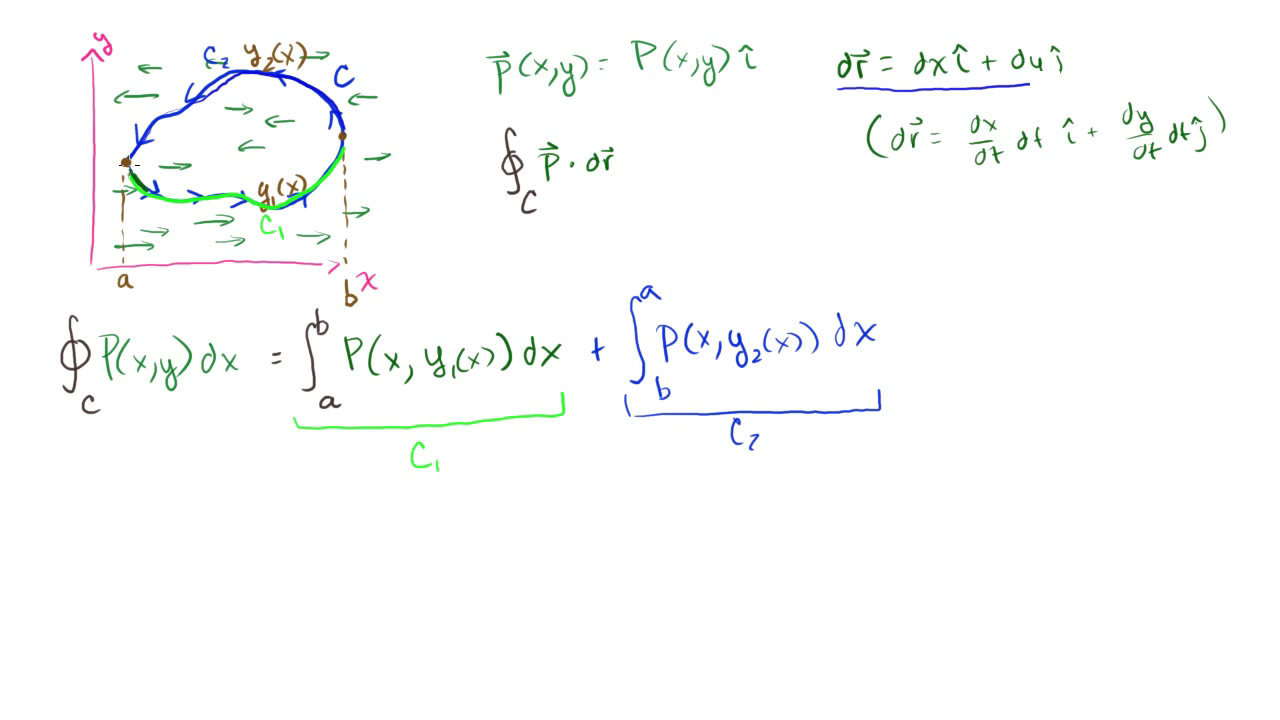 y
C₂ y₂(x)
C
y₁(x)
C₁
a
b x
p⃗(x,y) = P(x,y) î
dr⃗ = dx î + dy ĵ
∮_C p⃗ · dr⃗
(dr⃗ = dx/dt dt î + dy/dt dt ĵ)
∮_C P(x,y) dx = ∫_a^b P(x, y₁(x)) dx + ∫_b^a P(x, y₂(x)) dx
C₁
C₂